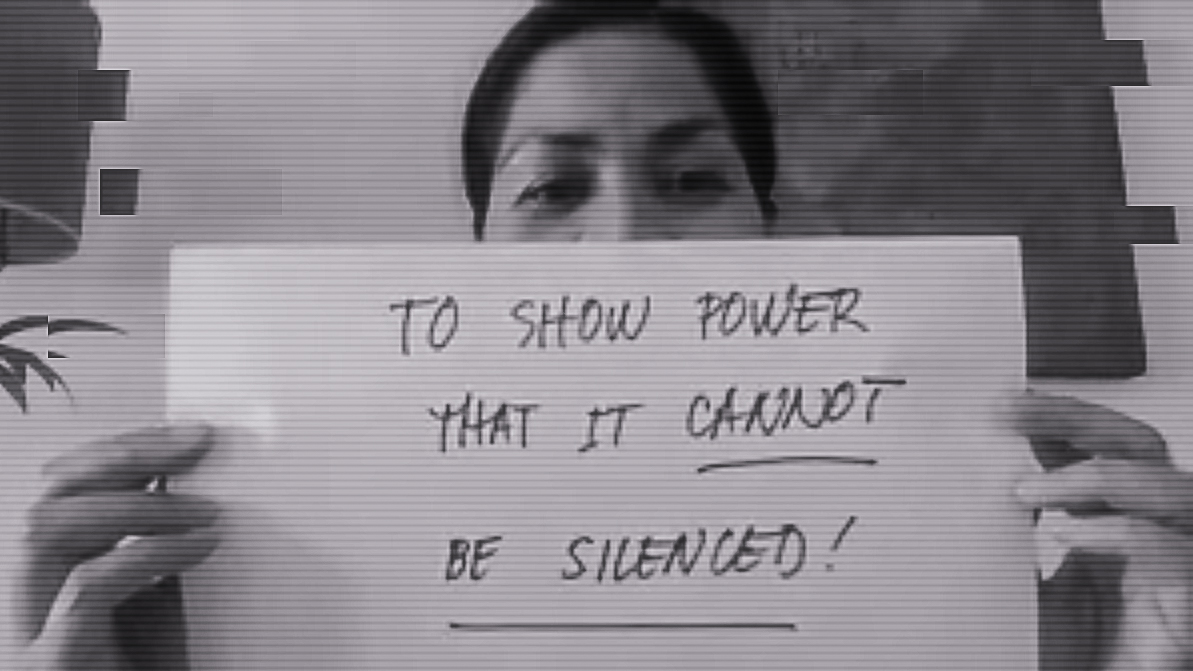 TO SHOW POWER
THAT IT CANNOT
BE SILENCED!